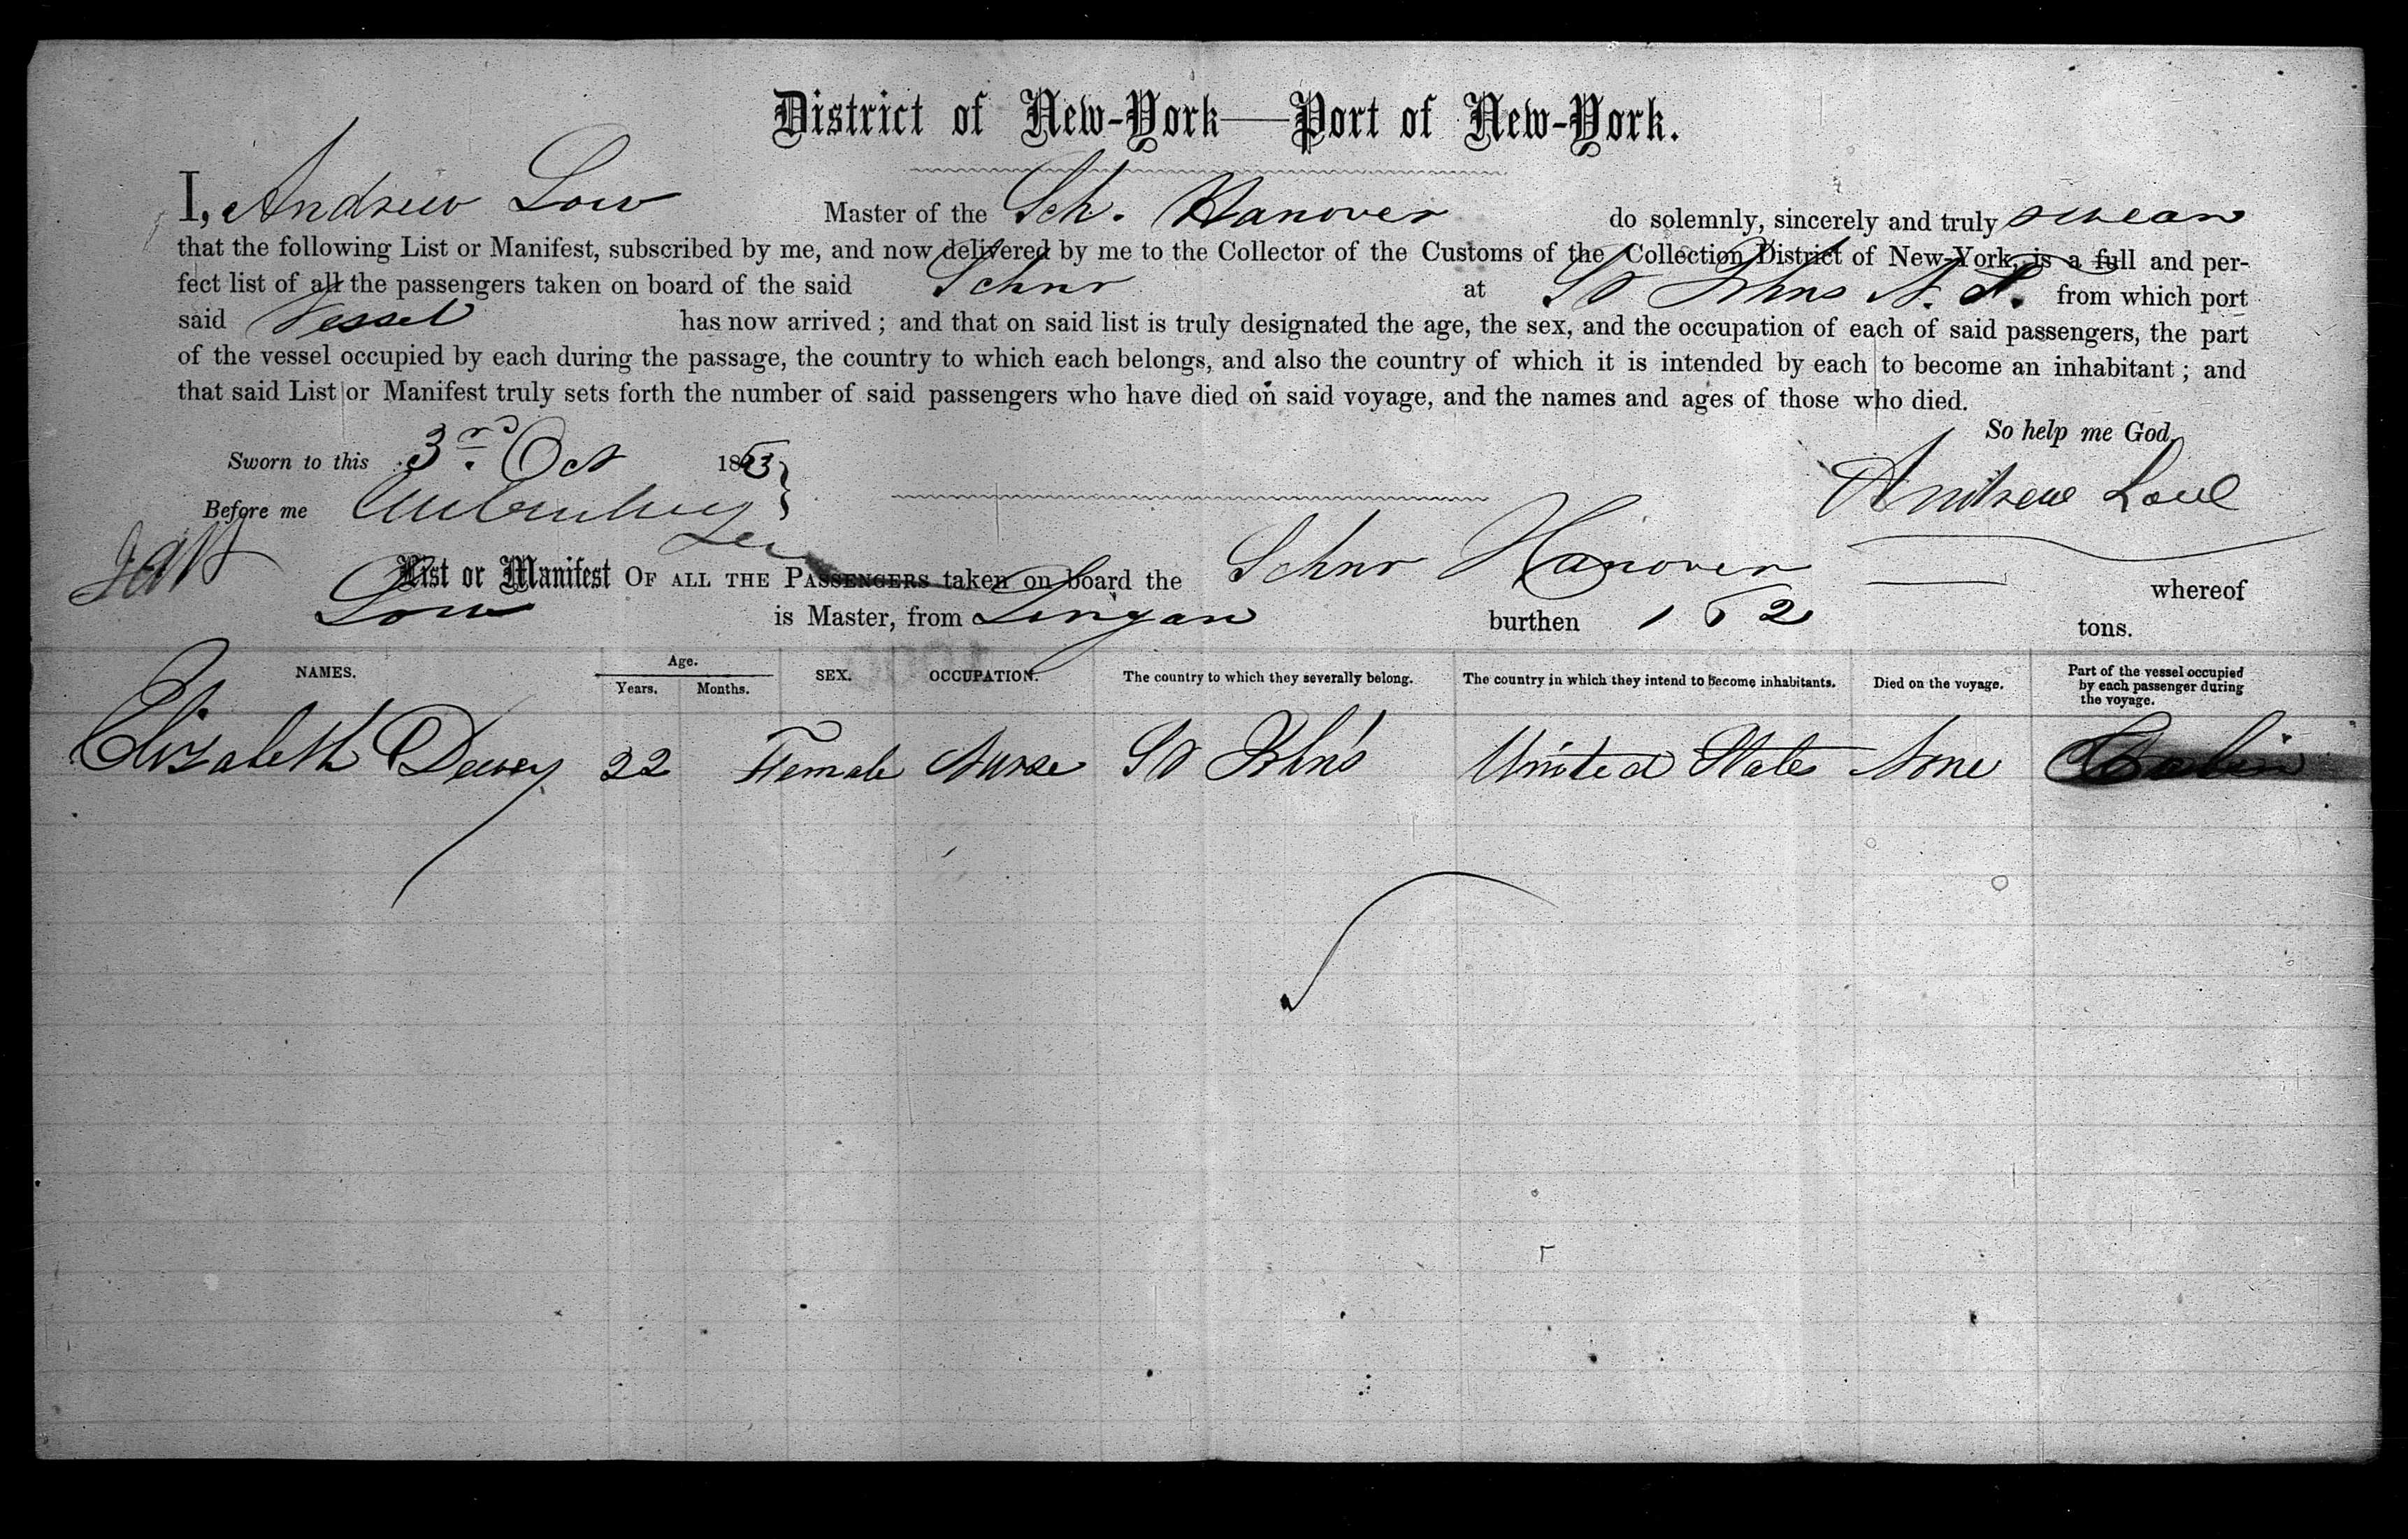 District of New-York—Port of New-York.
I, Andrew Low Master of the Sch. Hanover do solemnly, sincerely and truly swear
that the following List or Manifest, subscribed by me, and now delivered by me to the Collector of the Customs of the Collection District of New-York, is a full and per-
fect list of all the passengers taken on board of the said Schnr at St Johns N. F. from which port
said Vessel has now arrived; and that on said list is truly designated the age, the sex, and the occupation of each of said passengers, the part
of the vessel occupied by each during the passage, the country to which each belongs, and also the country of which it is intended by each to become an inhabitant; and
that said List or Manifest truly sets forth the number of said passengers who have died on said voyage, and the names and ages of those who died.
So help me God,
Sworn to this 3rd Oct 1863
Andrew Low
Before me
List or Manifest OF ALL THE PASSENGERS taken on board the Schnr Hanover whereof
Low is Master, from Lingan burthen 152 tons.
NAMES. Age. Years. Months. SEX. OCCUPATION. The country to which they severally belong. The country in which they intend to become inhabitants. Died on the voyage. Part of the vessel occupied by each passenger during the voyage.
Elizabeth Dewey 22 Female Nurse St John's United States None Cabin